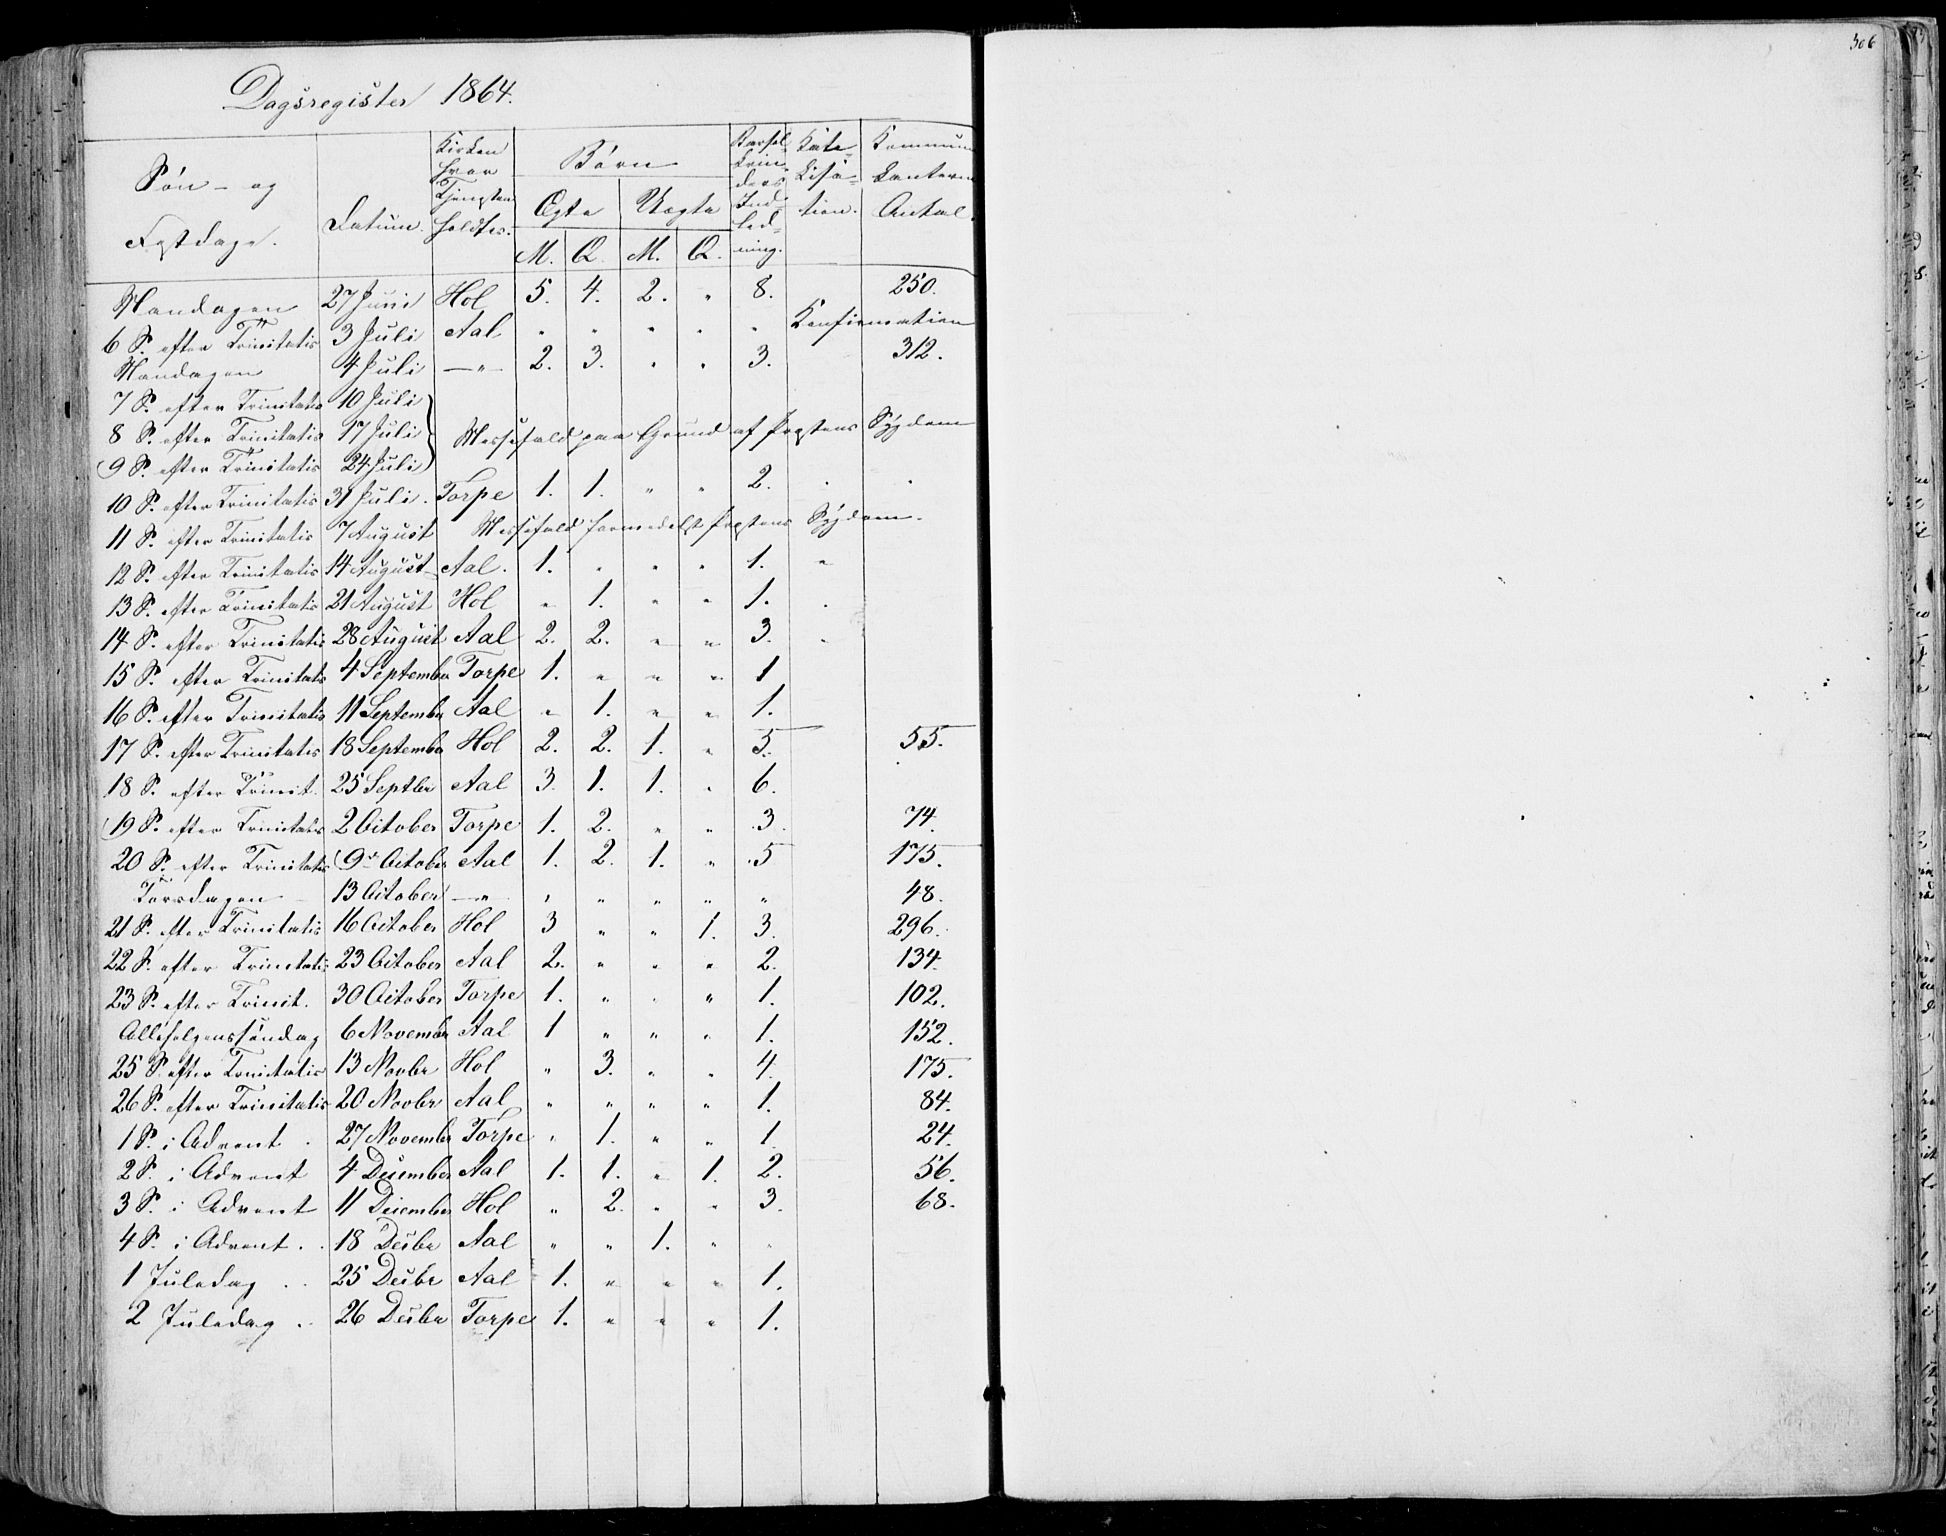 306
Dagsregister 1864.
Søn- og Festdage. | Datum. | Kirken hvor Tjenesten holdtes. | Børn | Barsel-kvin-ders Ind-led-ning. | Kate-kisa-tion. | Kommuni-kanternes Antal.
Ægte | Uægte
M. | Q. | M. | Q.
Mandagen | 27 Juni | Hol | 5. | 4. | 2. | " | 8. | | 250.
6 S. efter Trinitatis | 3 Juli | Aal | " | " | " | " | " | Konfirmation
Mandagen | 4 Juli | — " — | 2. | 3. | " | " | 3. | | 312.
7 S. efter Trinitatis | 10 Juli
8 S. efter Trinitatis | 17 Juli | Messefald paa Grund af Præstens Sygdom
9 S. efter Trinitatis | 24 Juli
10 S. efter Trinitatis | 31 Juli. | Torpe | 1. | 1. | " | " | 2. | . | .
11 S. efter Trinitatis | 7 August | Messefald formedelst Præstens Sygdom.
12 S. efter Trinitatis | 14 August | Aal. | 1. | " | " | " | 1. | "
13 S. efter Trinitatis | 21 August | Hol | " | 1. | " | " | 1. | .
14 S. efter Trinitatis | 28 August | Aal | 2. | 2. | " | " | 3. | .
15 S. efter Trinitatis | 4 September | Torpe | 1. | " | " | " | 1
16 S. efter Trinitatis | 11 September | Aal | " | 1. | " | " | 1.
17 S. efter Trinitatis | 18 September | Hol | 2. | 2. | 1. | " | 5. | | 55.
18 S. efter Trinit. | 25 Septbr | Aal | 3. | 1. | 1. | " | 6.
19 S. efter Trinitatis | 2 October | Torpe | 1. | 2. | " | " | 3. | | 74.
20 S. efter Trinitatis | 9 October | Aal | 1. | 2. | 1. | " | 5 | | 175.
Torsdagen | 13 October | — " — | " | " | " | " | " | | 48.
21 S. efter Trinitatis | 16 October | Hol | 3 | " | " | 1. | 3. | | 296.
22 S. efter Trinitatis | 23 October | Aal | 2. | " | " | " | 2. | | 134.
23 S. efter Trinit. | 30 October | Torpe | 1. | " | " | " | 1. | | 102.
Allehelgenssøndag | 6 November | Aal | 1 | " | " | " | 1. | | 152.
25 S. efter Trinitatis | 13 Novbr | Hol | " | 3. | " | " | 4. | | 175.
26 S. efter Trinitatis | 20 Novbr | Aal | " | " | " | " | 1. | | 84.
1 S. i Advent . | 27 November | Torpe | " | 1. | " | " | 1. | | 24.
2 S. i Advent | 4 December | Aal | 1. | 1. | " | 1. | 2. | | 56.
3 S. i Advent | 11 December | Hol | " | 2. | " | " | 3. | | 68.
4 S. i Advent . . | 18 Decbr | Aal | " | " | 1. | " | "
1 Juledag . . | 25 Decbr | Aal | 1. | " | " | " | 1.
2 Juledag . . | 26 Decbr | Torpe | 1. | " | " | " | 1.